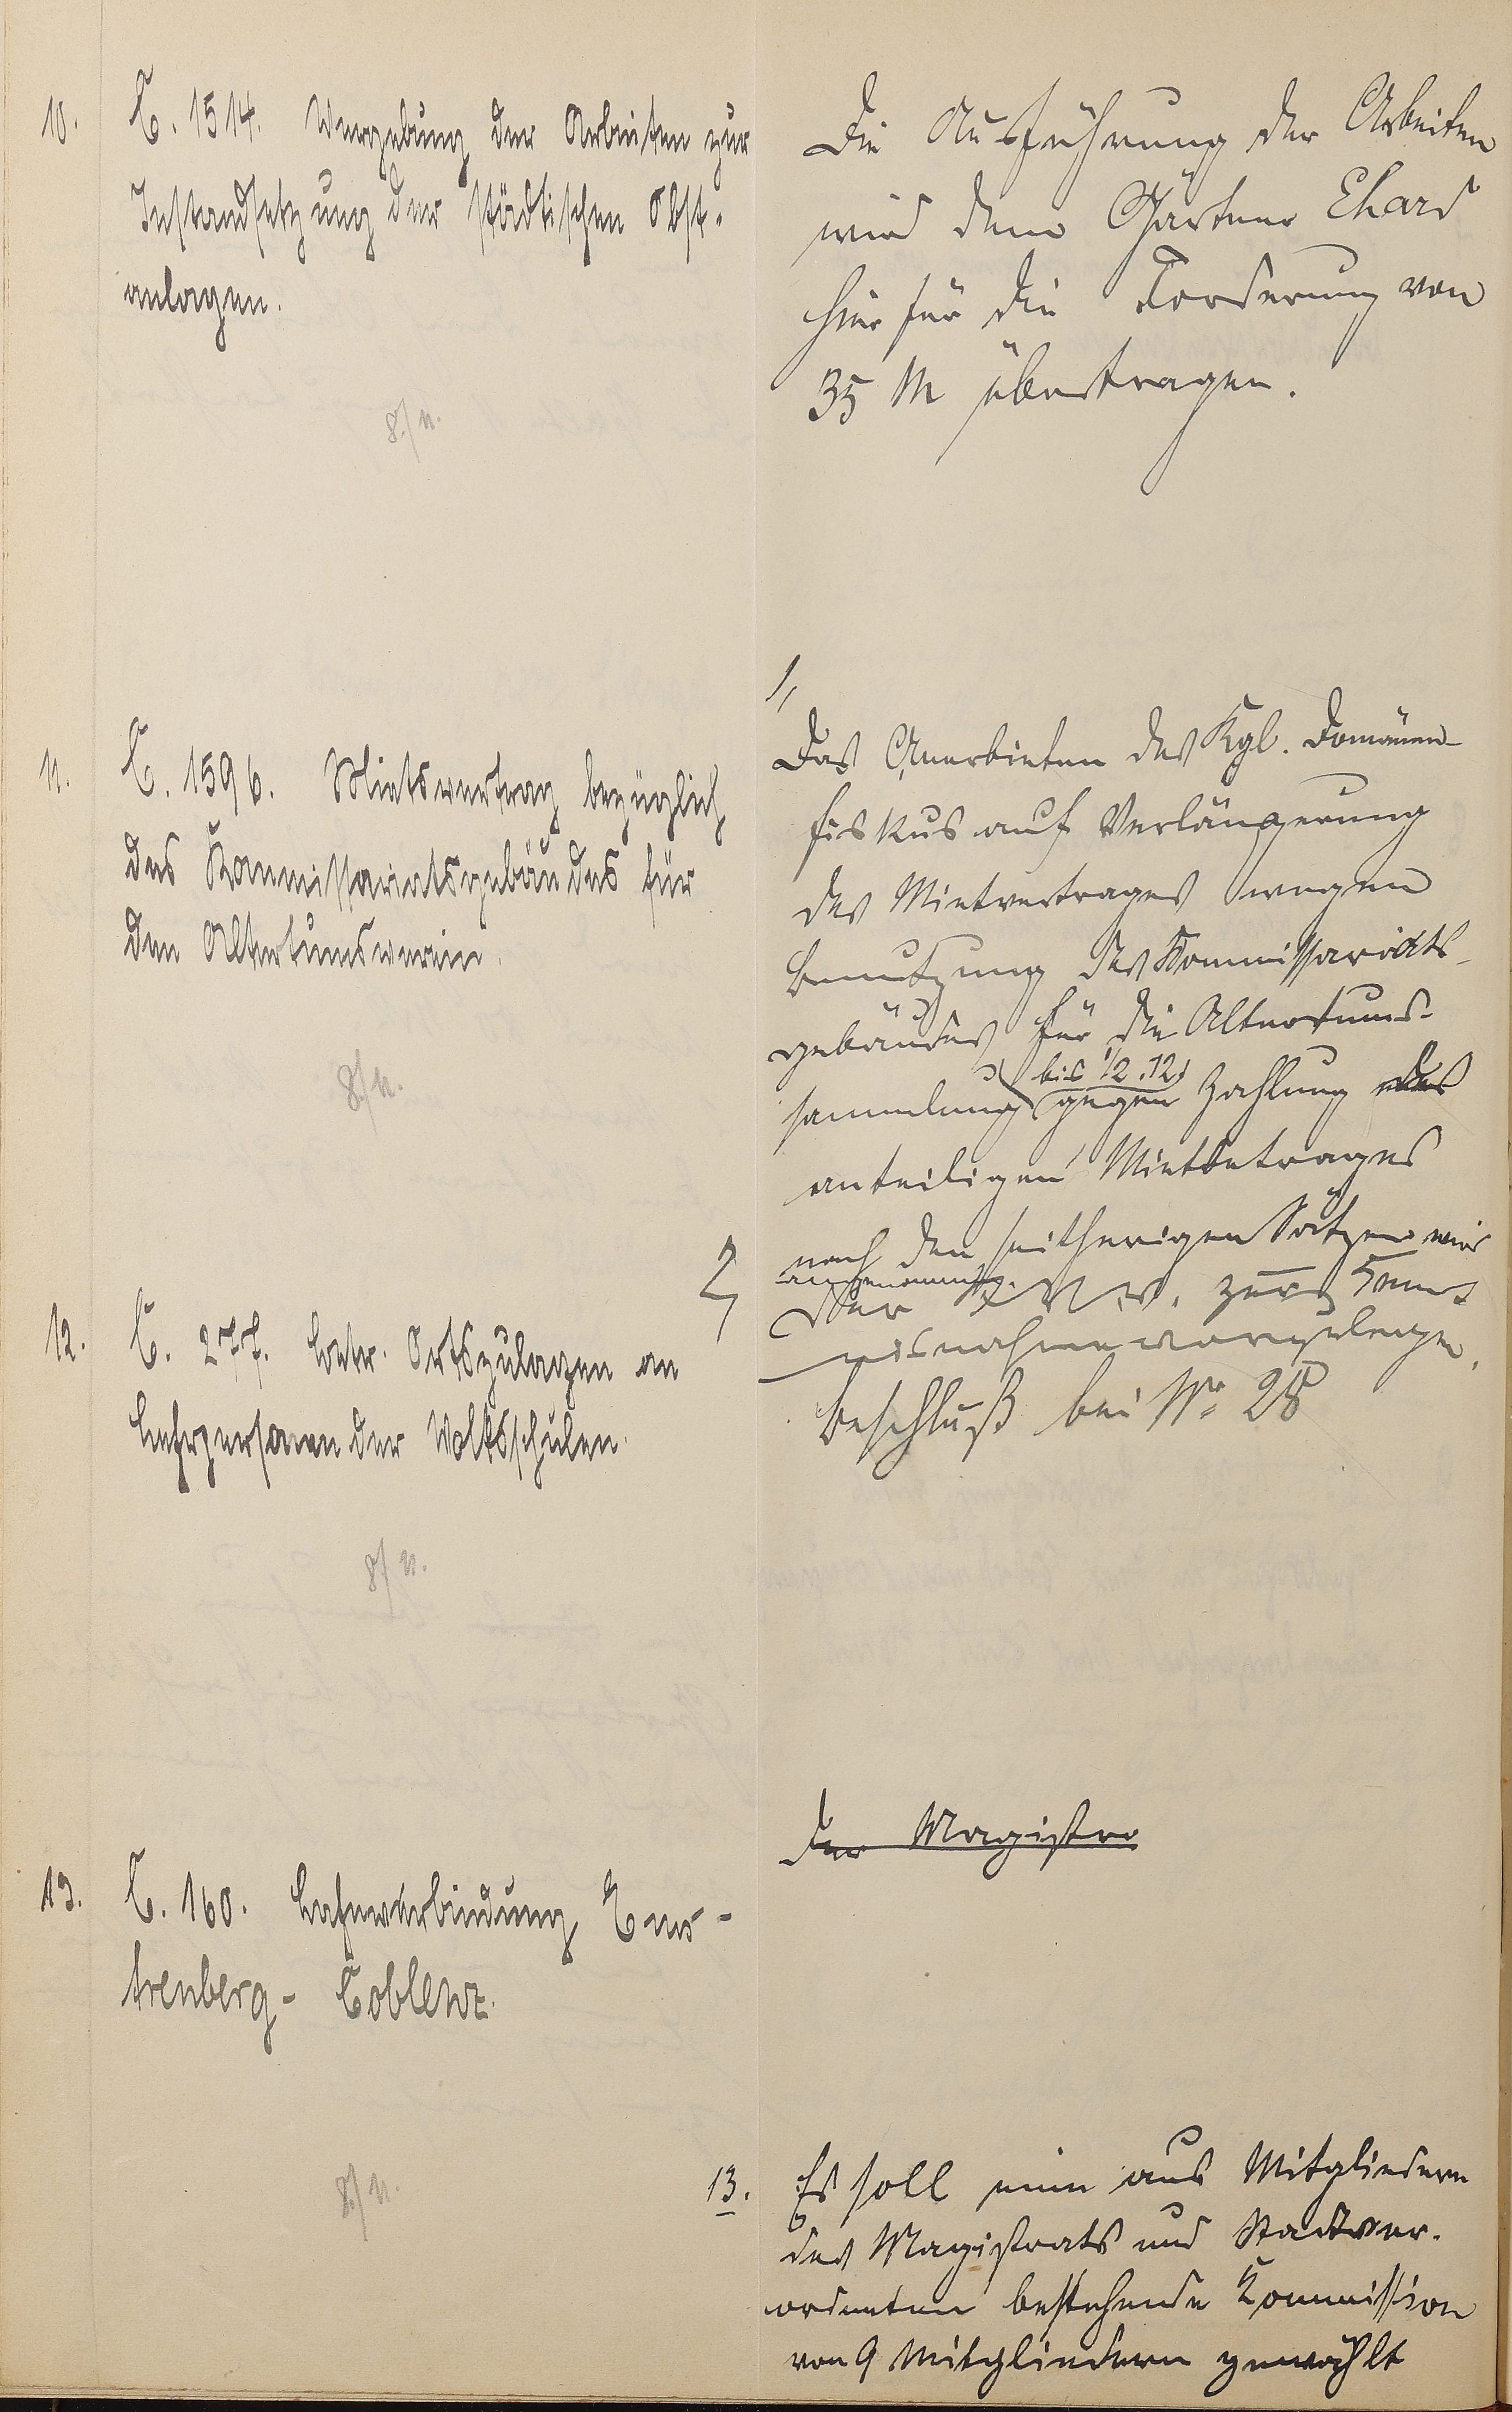 10. C. 1514. Vergebung der Arbeiten zur
Instandsetzung der städtischen Obst-
anlagen.
8./11.
Die Ausführung der Arbeiten
wird dem Gärtner Ehard
hier für die Forderung von
35 M übertragen.
11. C. 1596. Mietsvertrag bezüglich
des Kommissariatsgebäudes für
den Altertumsverein.
8./11.
1,
Das Anerbieten des Kgl. Domänen-
fiskus auf Verlängerung
des Mietvertrages wegen
Benutzung des Kommissariats-
gebäudes für die Altertums-
bis 1/2.12.
sammlung gegen Zahlung des
anteiligen Mietbetrages
nach den seitherigen Sätzen wird
angenommen.
2, Der St. V. V. zur Kennt
nisnahme vorzulegen.
12. C. 277. betr. Ortszulagen an
Lehrpersonen der Volksschulen.
8./11.
Beschluß bei No 28
Der Magistra
13. C. 160. Bahnverbindung Ems-
Arenberg- Coblenz.
8./11.
13. Es soll eine aus Mitgliedern
des Magistrats und Stadtver-
ordneten bestehende Kommission
von 9 Mitgliedern gewählt